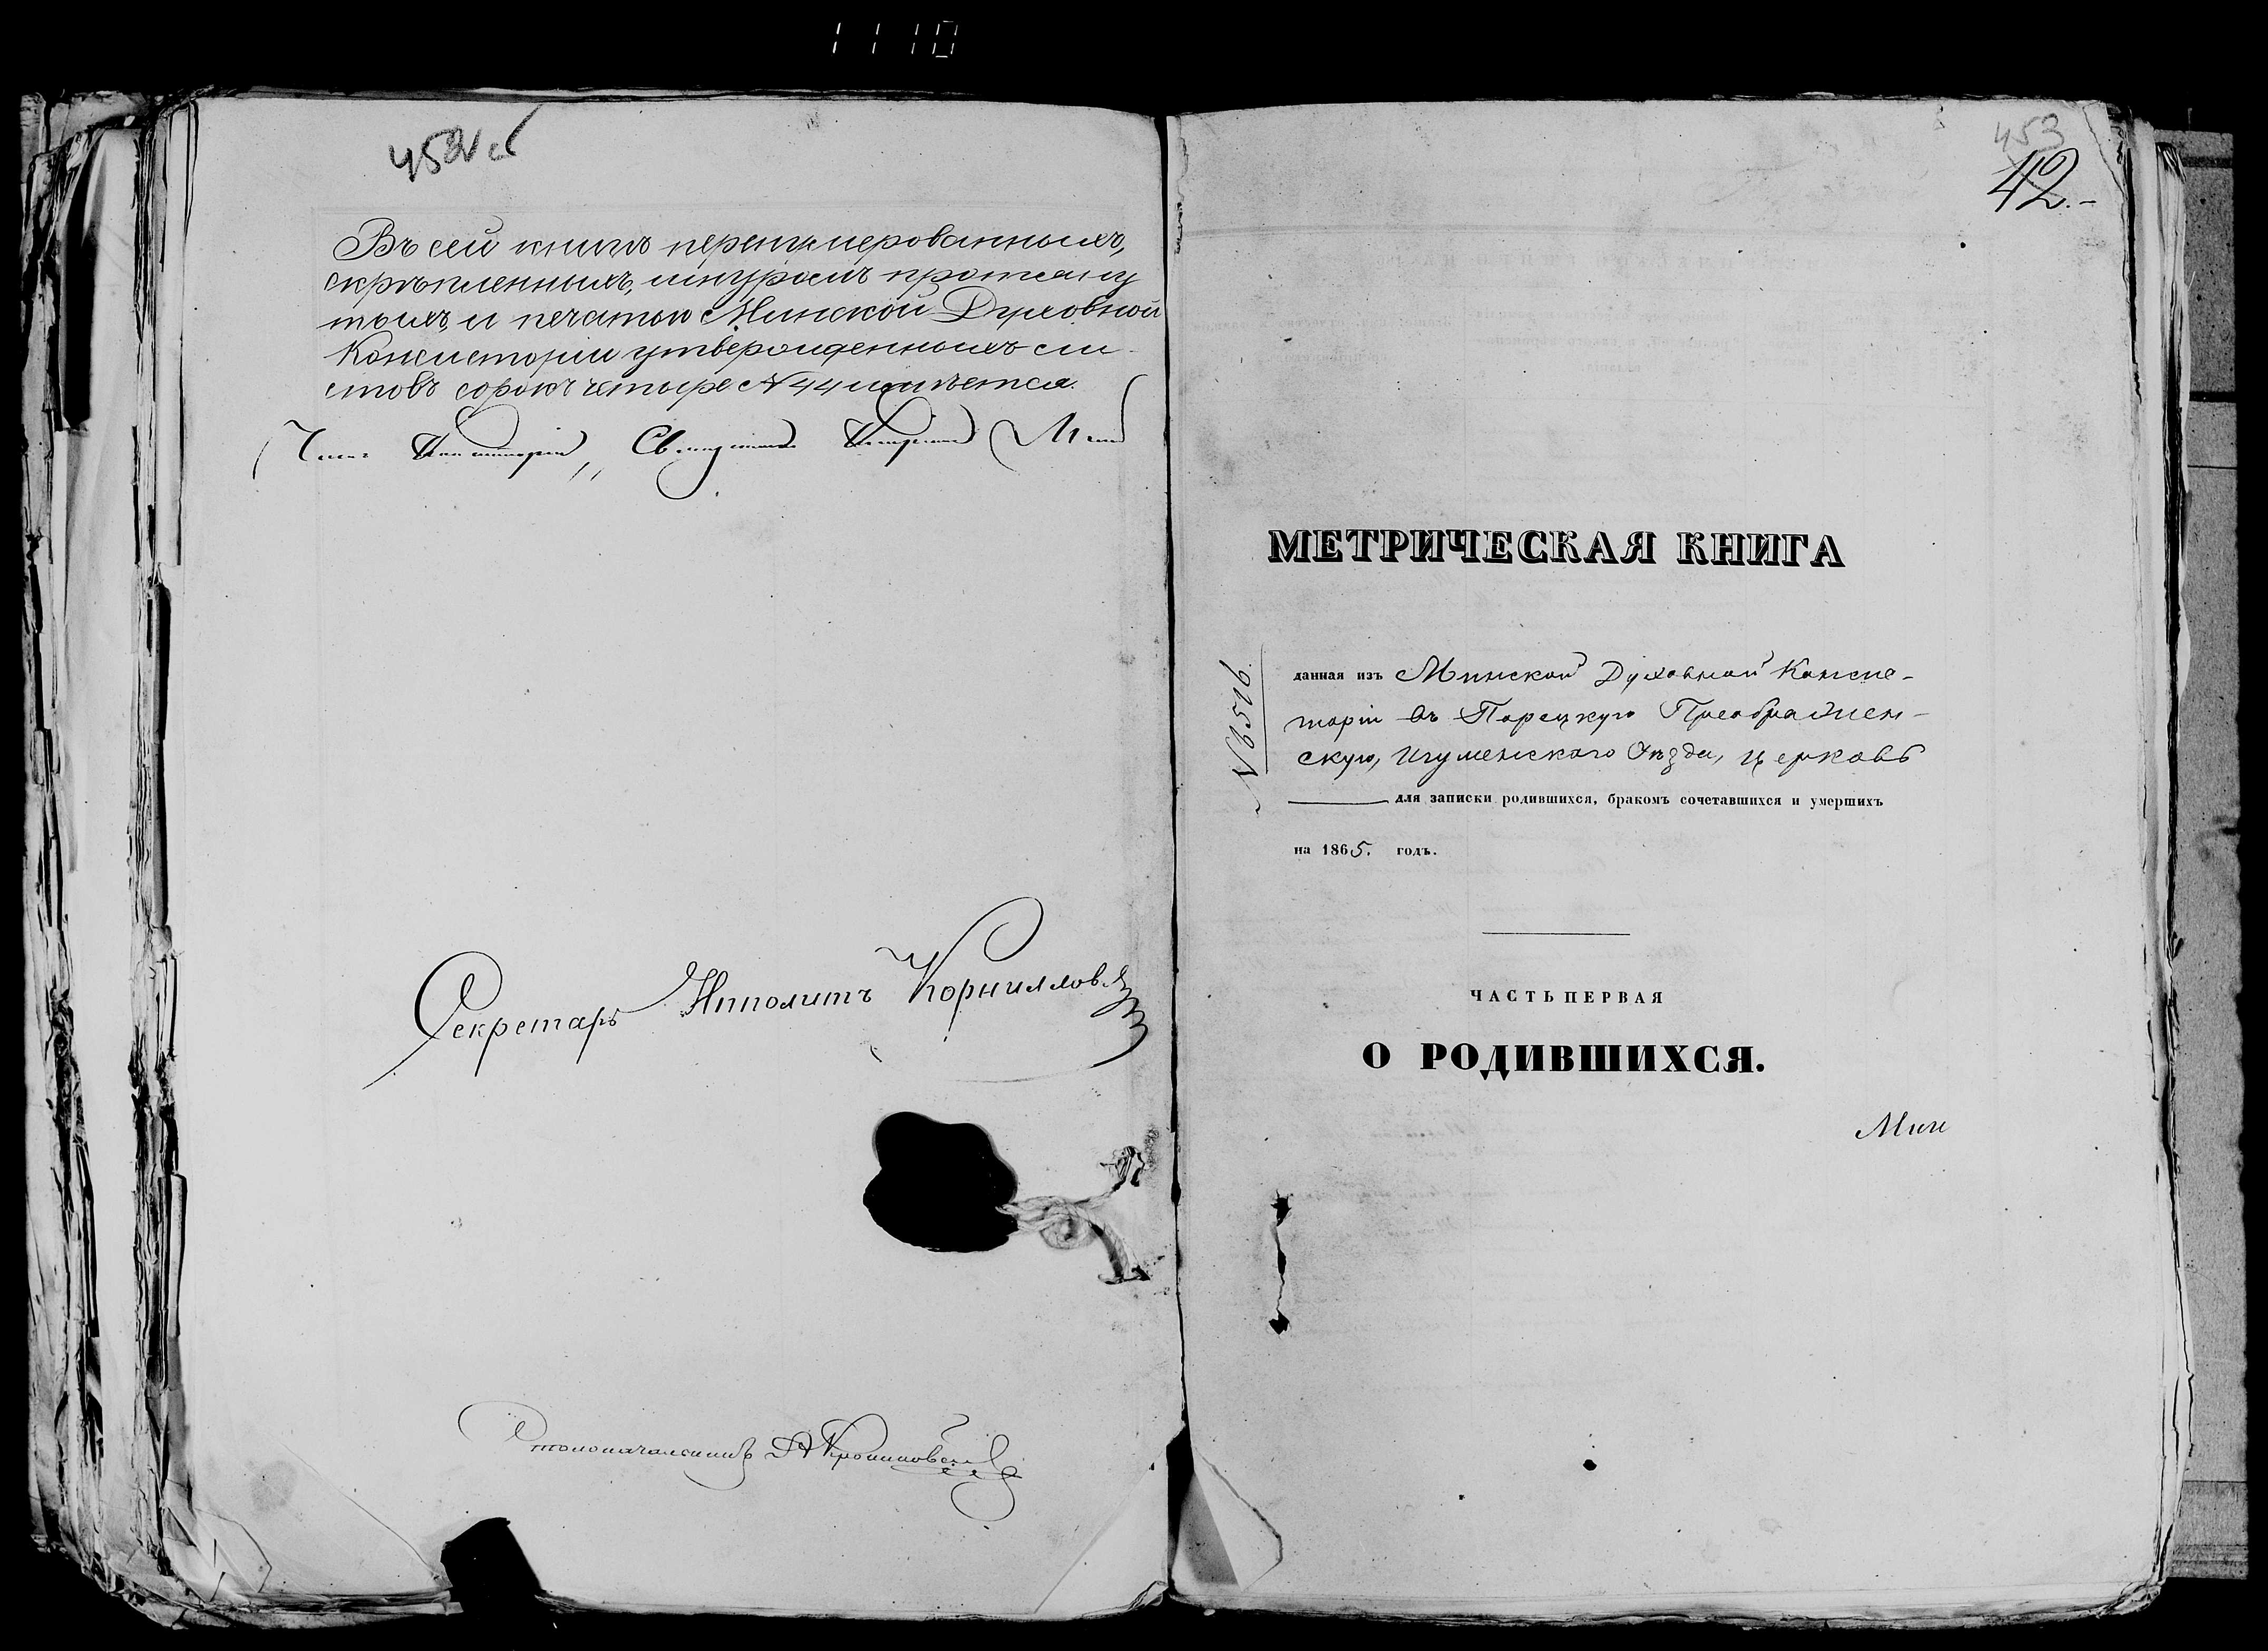 1110
452 об
Въ сей книгѣ перенумерованныхъ,
скрѣпленныхъ, шнуромъ протяну
тыхъ и печатью Минской Духовной
Консисторіи утвержденныхъ ли-
стовъ сорокъ четыре N 44 имѣется.
Членъ Консисторіи, Священникъ
Секретарь Ипполитъ Корниллов
Столоначальникъ
453
42.-
МЕТРИЧЕСКАЯ КНИГА
N 6516.
данная изъ Минской Духовной Консис-
торіи въ Порецкую Преображен-
скую, Игуменскаго Уѣзда, церковь
для записки родившихся, бракомъ сочетавшихся и умершихъ
на 1865. годъ.
ЧАСТЬ ПЕРВАЯ
О РОДИВШИХСЯ.
Мин